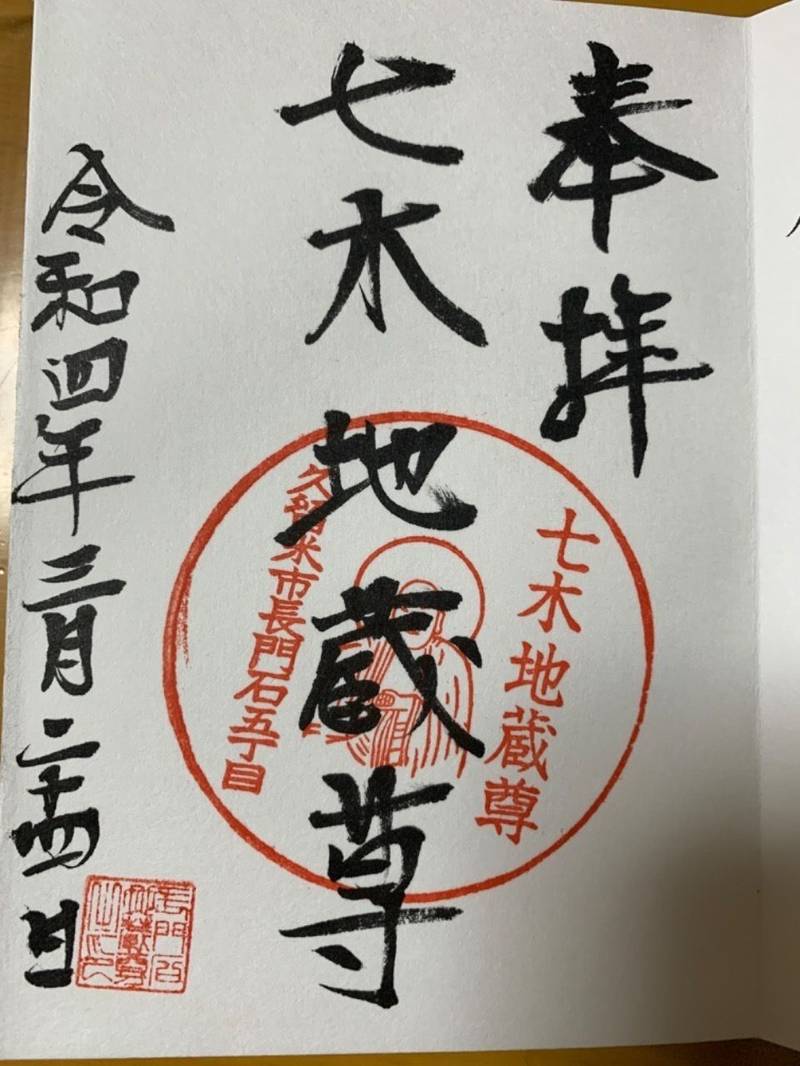 奉拝
七木地蔵尊
七木地蔵尊
久留米市長門石五丁目
令和四年三月二十四日